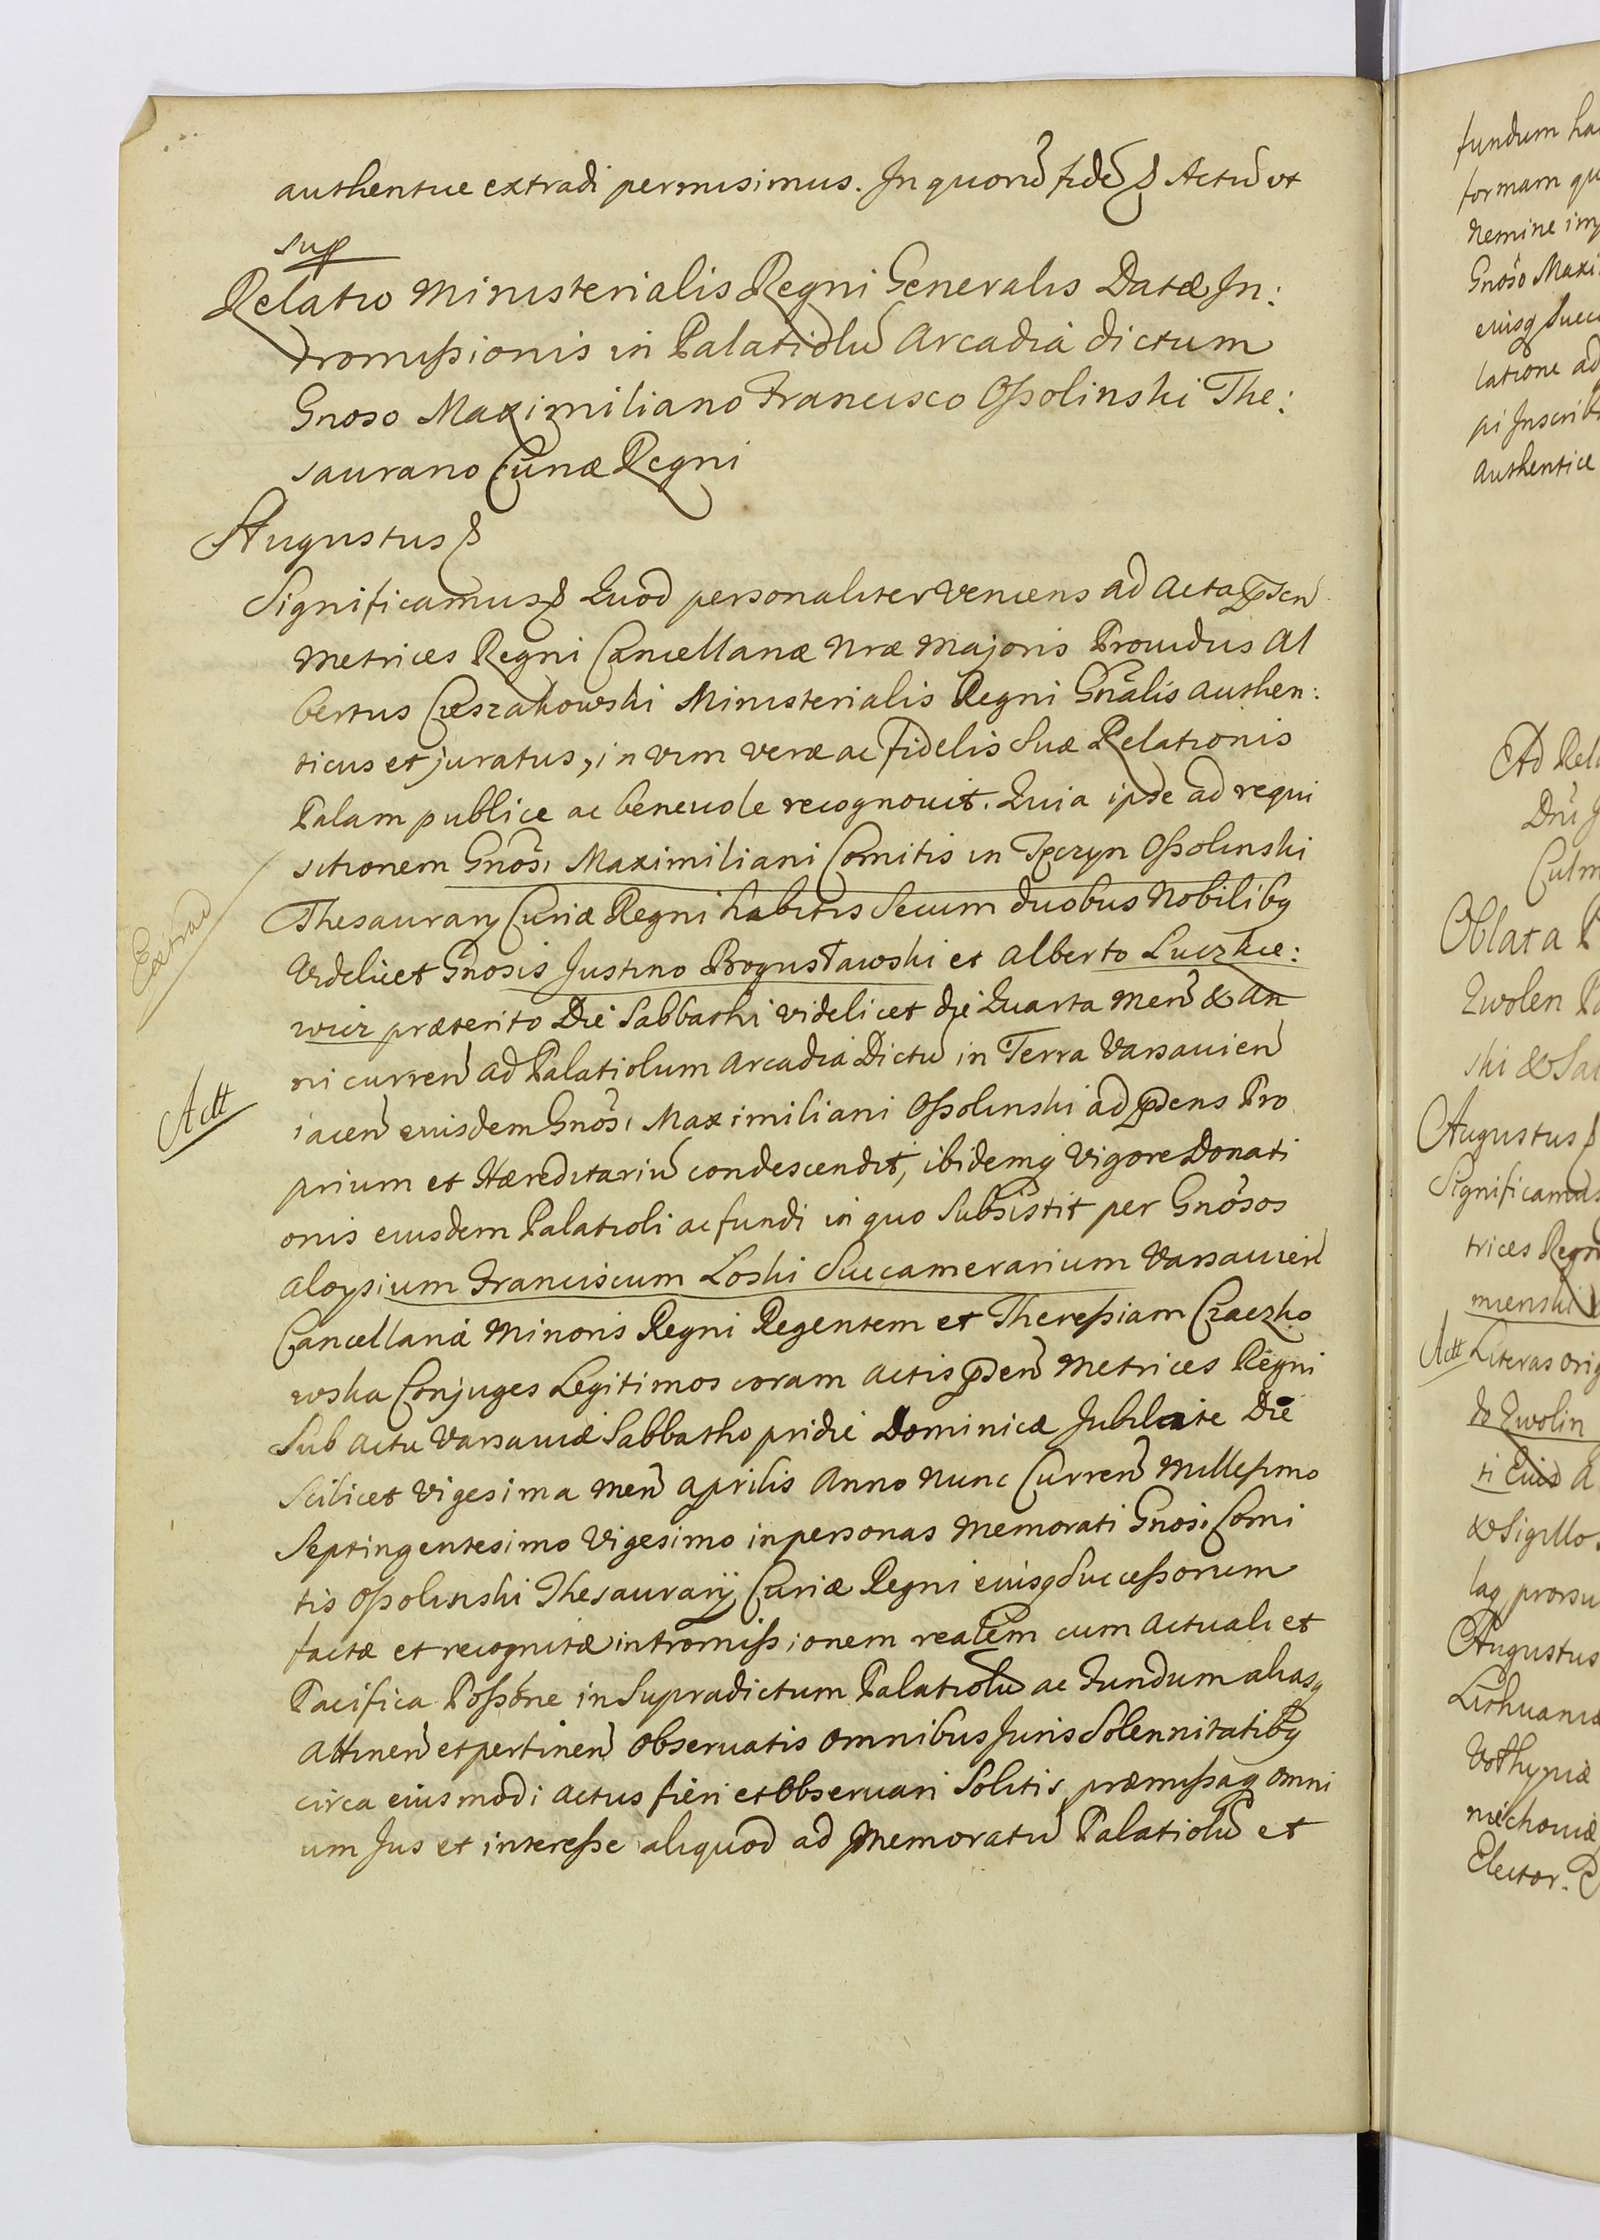 authentice extradi permisimus. In quorū fidē & Actū ut
sup
Relatio Ministerialis Regni Generalis Datæ In:
tromissionis in Palatiolū Arcadia dictum
Gnoso Maximiliano Francisco Ossolinski The:
saurario Curiæ Regni
Augustus &
Significamus & Quod personaliter veniens ad Acta pñsen
Metrices Regni Cancellariæ Nræ Majoris Providus Al
bertus Czeszakowski Ministerialis Regni Gnãlis authen:
ticus et juratus, in vim veræ ac fidelis Suæ Relationis
Palam publice ac benevole recognovit. Quia ipse ad requi
sitionem Gnõsi Maximiliani Comitis in Tęczyn Ossolinski
Thesaurarij Curiæ Regni habitis secum duobus Nobilibq
Videlicet Gnosis Justino Bogusławski et Alberto Luczkie:
wicz præterito Die Sabbathi videlicet die Quarta Men̄ & An
ni curren̄ ad Palatiolum Arcadia Dictū in Terra Varsavien̄
iacen̄ eiusdem Gnõsi Maximiliani Ossolinski ad pñsens Pro
prium et Hæreditariū condescendit, ibidemq Vigore Donati
onis eiusdem Palatioli ac fundi in quo Subsistit per Gnõsos
Aloysium Franciscum Loski Succamerarium Varsavien̄
Cancellariæ Minoris Regni Regentem et Theressiam Czaczko
wska Conjuges Legitimos coram Actis pñsen̄ Metrices Regni
Sub actu Varsaviæ Sabbatho pridie Dominicæ Jubilate Die
Scilicet Vigesima Men̄ Aprilis Anno Nunc Curren̄ Millesimo
Septingentesimo Vigesimo in personas Memorati Gnosi Comi
tis Ossolinski Thesaurarij Curiæ Regni eiusq Successorum
factæ et recognitæ intromissionem realem cum Actuali et
Pacifica Possõne in Supradictum Palatiolū ac Fundum aliasq
Attinen̄ et pertinen̄ observatis omnibus Juris Solennitatibq
circa eiusmodi actus fieri et Observari Solitis præmissaq omni
um Jus et interesse aliquod ad Memoratū Palatiolū et
Extrad
Actt
fundum ha
formam qu
Nemine im
Gnõso Maxi
eiusq Succ
latione ad
Authentice
Ad Rel
Culm
Oblata P
Zwolen
Augustus &
Significamus
trices Regn
Actt Literas orig
de Zwolin
& Sigillo
laq prorsu
Augustus
Lithuaniæ
Elector.